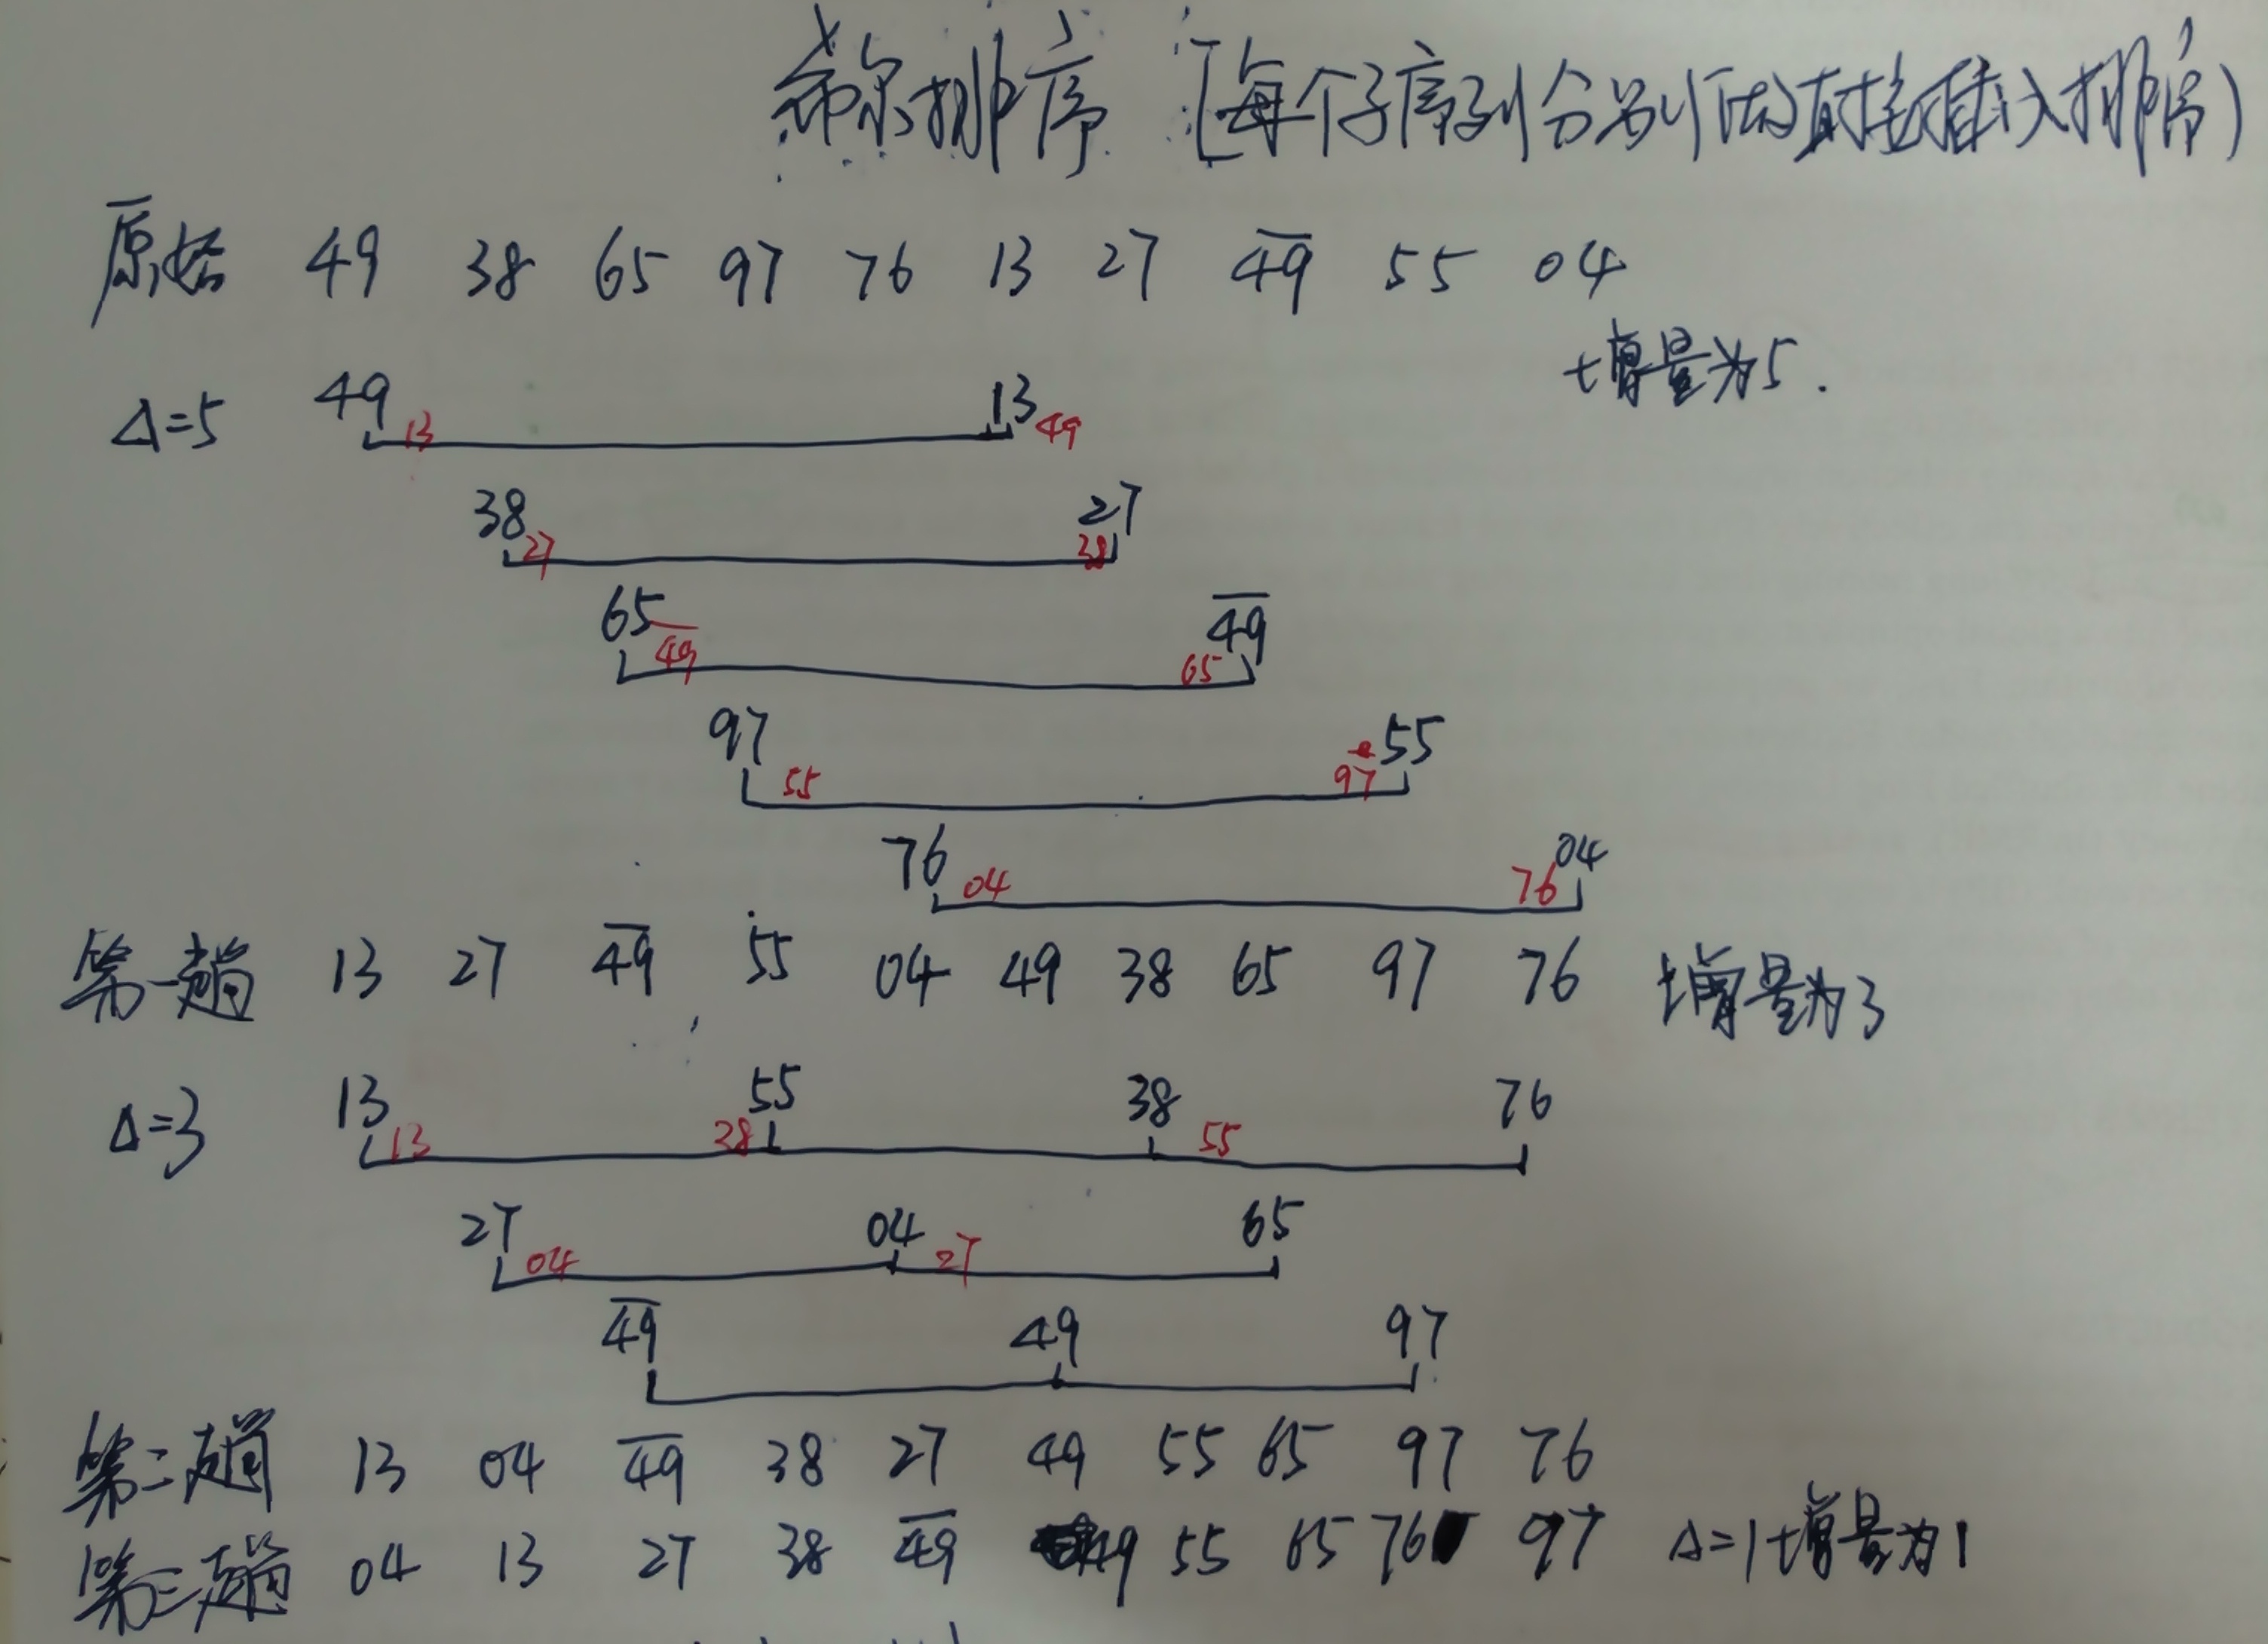 希尔排序 [每个子序列分别做直接插入排序)
原始 49 38 65 97 76 13 27 4̅9̅ 55 04
增量为5.
Δ=5 49 13 13 49
38 27 38 27
65 4̅9̅ 65 4̅9̅
97 55 97 55
76 04 76 04
第一趟 13 27 4̅9̅ 55 04 49 38 65 97 76 增量为3
Δ=3 13 13 38 55 38 55 76
27 04 04 27 65
4̅9̅ 49 97
第二趟 13 04 4̅9̅ 38 27 49 55 65 97 76
第三趟 04 13 27 38 4̅9̅ 49 55 65 76 97 Δ=1 增量为1